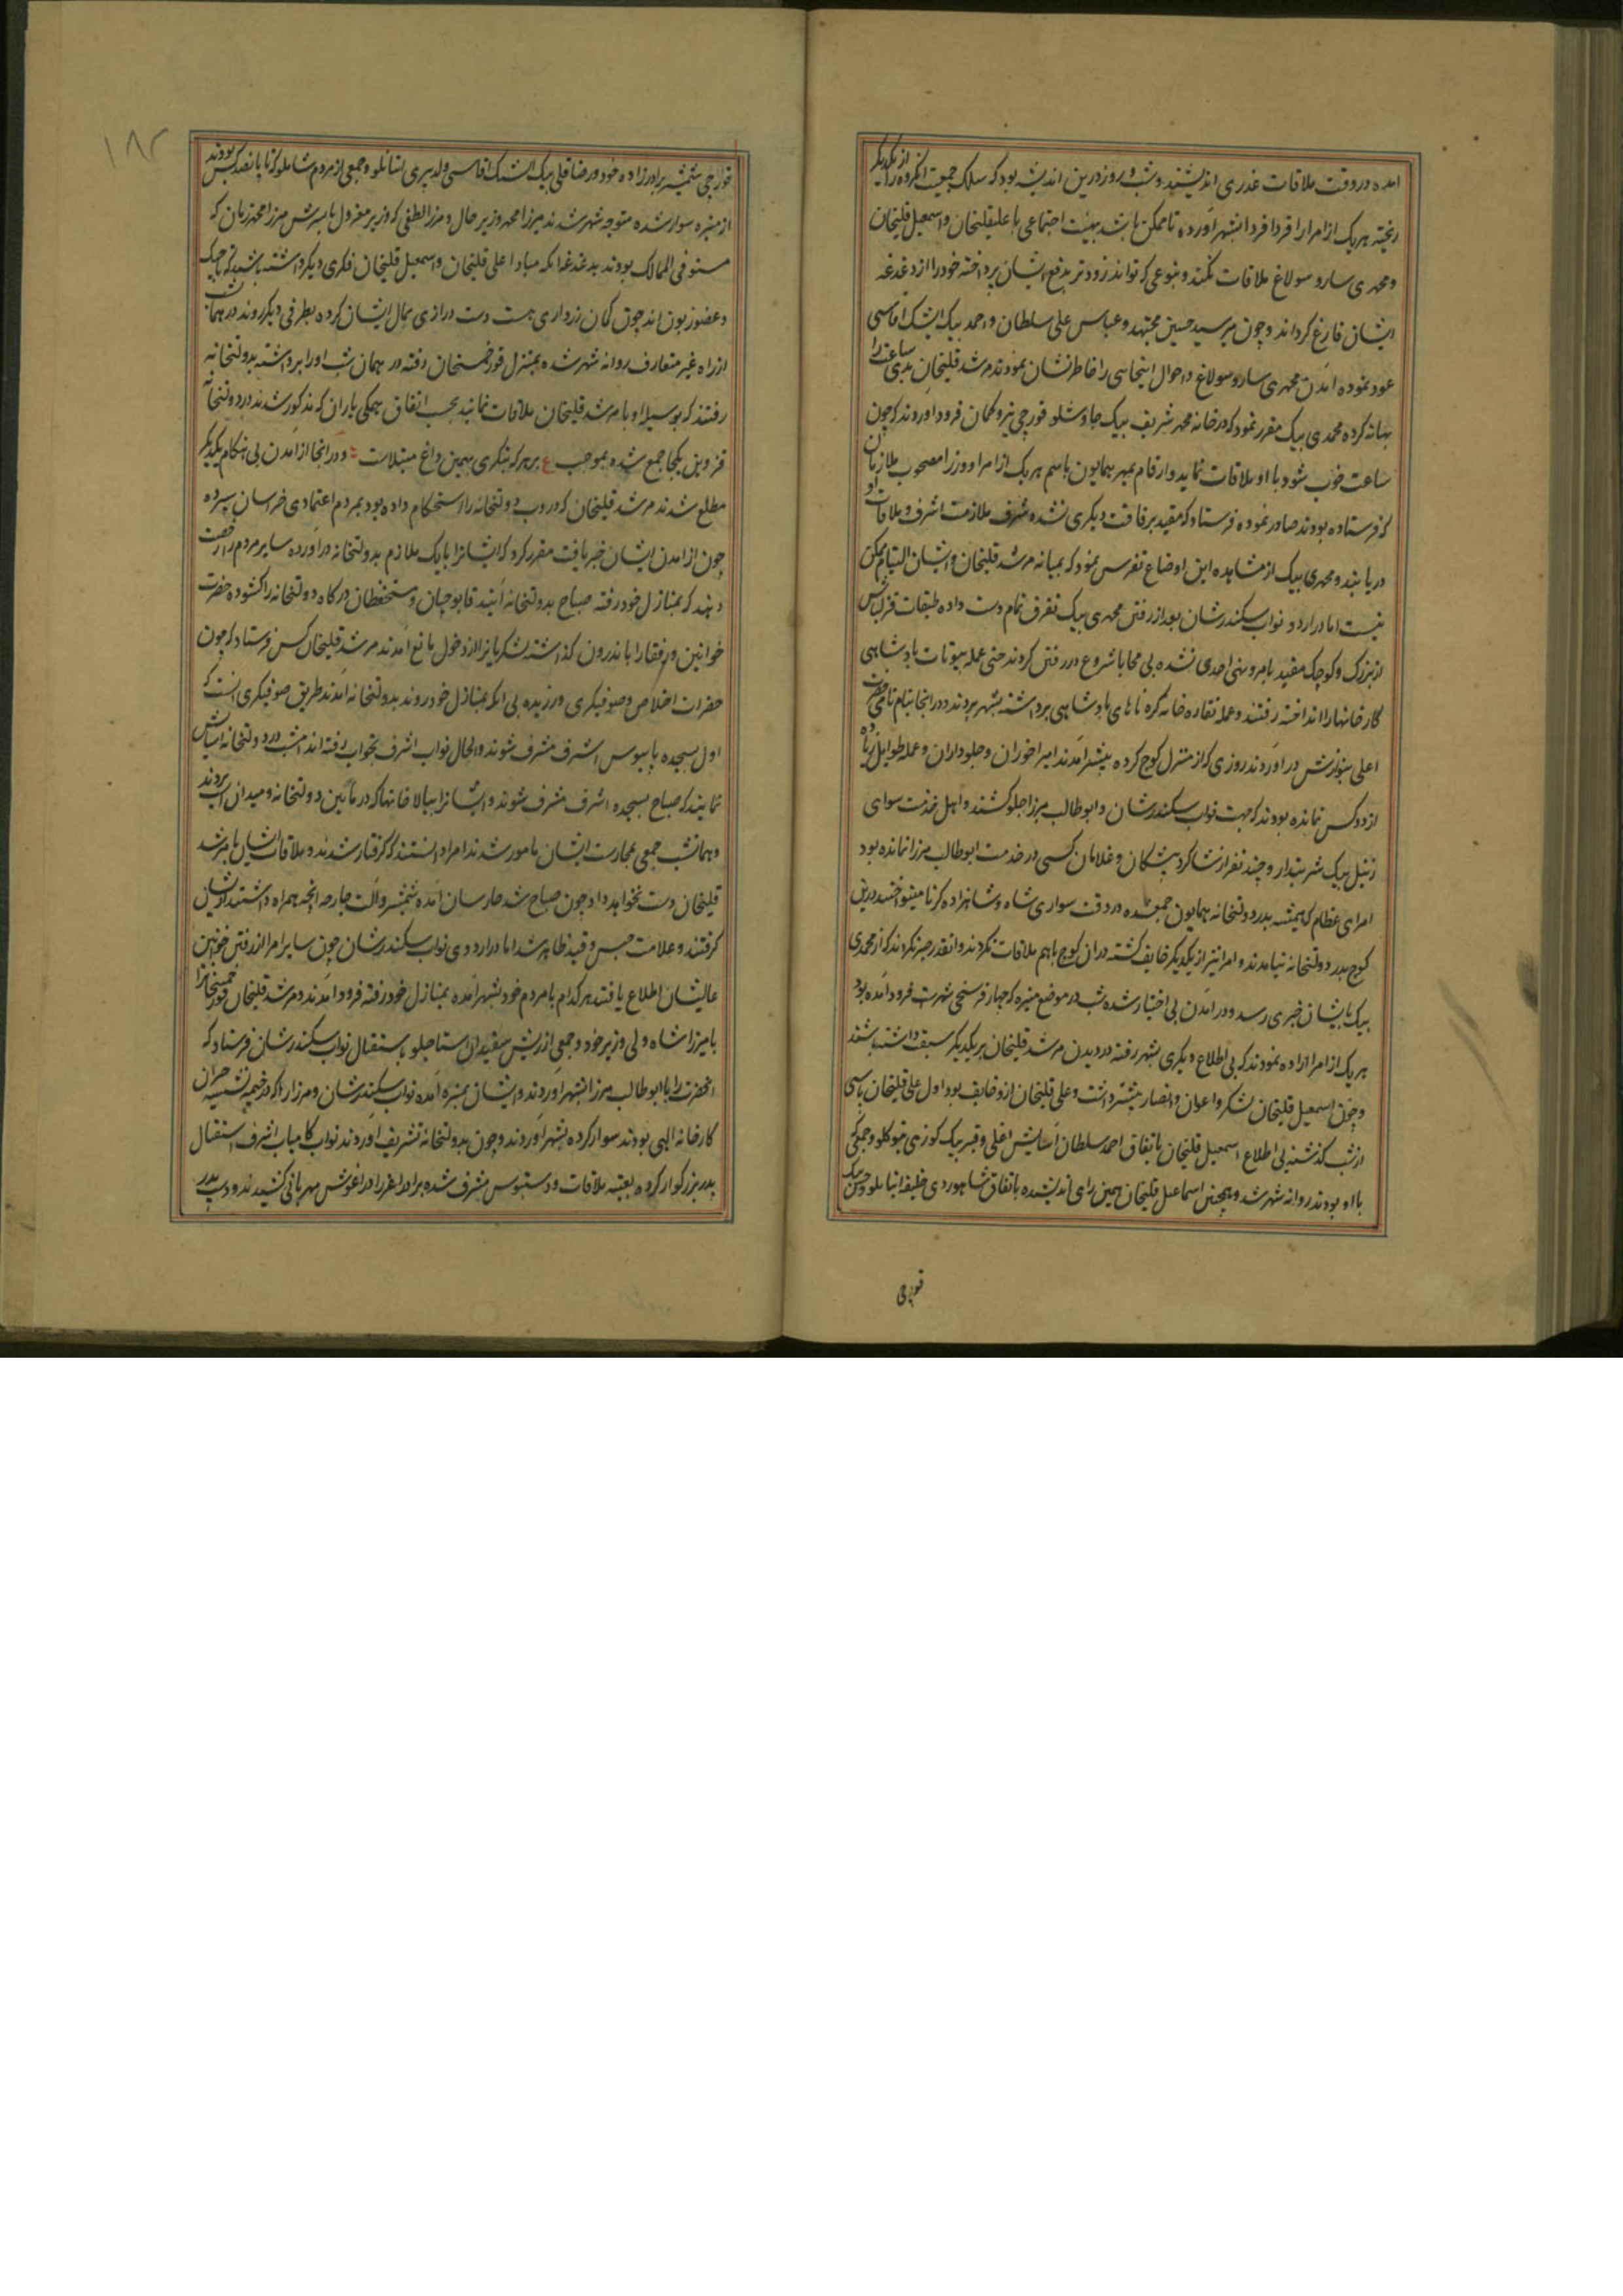 امده در وقت ملاقات غدری اندیشید و شب و روز درین اندیشه بود که سلک جمعیت انکروه را از یکدیکر
ریخته هر یک از امرا را فردا فردا بشهر آورده تا ممکن باشد بهیئت اجتماعی با علیقلیخان و اسمعیل قلیخان
و محمدی سارو سولاغ ملاقات نکنند و بنوعی که تواند زودتر بدفع ایشان پرداخته خود را از دغدغه
ایشان فارغ کرداند و چون میر سید حسین مجتهد و عباس علی سلطان و احمد بیک ایشک اقاسی
عود نموده آمدن محمدی سارو سولاغ و احوال اینجایی را خاطرنشان نمودند مرشد قلیخان بدی ساعت را
بهانه کرده محمدی بیک مقرر نمود که در خانه محمد شریف بیک چاوشلو قورچی تیر و کمان فرود اوردند که چون
ساعت خوب شود با او ملاقات نماید و ارقام بمهر همایون باسم هر یک از امرا و وزرا مصحوب ملازمان
که فرستاده بودند صادر نموده فرستاد که مقید برفاقت دیکری نشده شرف ملازمت اشرف و ملاقات او
دریابند و محمدی بیک از مشاهده این اوضاع تفرس نمود که میانه مرشد قلیخان و ایشان التیام ممکن
نیست اما در اردو نواب سکندرشان بعد از رفتن محمدی بیک تفرق تمام دست داده طبقات قزلباش
از بزرک و کوچک مقید بامر و نهی احدی نشده بی محابا شروع در رفتن کردند حتی عمله بیوتات پادشاهی
کارخانها را انداخته رفتند و عمله نقاره خانه کره ناهای پادشاهی برداشته بشهر بردند و در انجا بنام نامی حضرت
اعلی بنوازش در آوردند روزی که از منزل کوچ کرده پیشتر آمدند امیراخوران و جلوداران و عمله طوایل زیاده
از دو کس نمانده بودند که جهت نواب سکندرشان و ابوطالب میرزا جلو کشند و اهل خدمت سوای
زنبل بیک شربتدار و چند نفر از شاکرد پیشکان و غلامان کسی در خدمت ابوطالب میرزا نمانده بود
امرای عظام که همیشه بدر دولتخانه همایون جمع شده در وقت سواری شاه و شاهزاده کرنا مینواختند درین
کوچ بدر دولتخانه نیامدند و امرا نیز از یکدیکر خایف کشته در ان کوچ با هم ملاقات نکردند و انقدر صبر نکردند که از محمدی
بیک بایشان خبری رسد و در آمدن بی اختیار شده شب در موضع منیره که چهار فرسخی شهرست فرود آمده بود
هر یک از امرا اراده نمودند که بی اطلاع دیکری بشهر رفته در دیدن مرشد قلیخان بر یکدیکر سبقت داشته باشند
و چون اسمعیل قلیخان لشکر و اعوان و انصار بیشتر داشت و علی قلیخان ازو خایف بود اول علی قلیخان پاسی
از شب کذشته بی اطلاع اسمعیل قلیخان باتفاق احمد سلطان آسایش اغلی و قنبر بیک کوزی بیوکلو و جمعی که
با او بودند روانه شهر شد و همچنین اسماعیل قلیخان همین رای اندیشیده باتفاق شاهوردی خلیفه اینالو و حسن بیک
قورچی
۱۸۲
قورچی شمشیر برادرزاده خود و رضا قلی بیک ایشک اقاسی ولد پیری اینانلو و جمعی از مردم شاملو که تا پانصد کس بودند
از منیره سوار شده متوجه شهر شدند میرزا محمد وزیر حال و میرزا لطفی که وزیر معزول با پسرش میرزا محمد زمان که
مستوفی الممالک بودند بدغدغه انکه مبادا علی قلیخان و اسمعیل قلیخان فکری دیکر داشته باشند که تاجیک
و عضو زبون اند چون کمان زرداری هست دست درازی بمال ایشان کرده بطرفی دیکر روند در همان شب
از راه غیر متعارف روانه شهر شده بمنزل قورخمسخان رفته در همان شب او را برداشته بدولتخانه
رفتند که بوسیله او با مرشد قلیخان ملاقات نمایند بحسب اتفاق همکی یاران که مذکور شدند در دولتخانه
قزوین یکجا جمع شده بموجب ع بر هر که بنکری بهمین داغ مبتلاست و در انجا از آمدن بی هنکام یکدیکر
مطلع شدند مرشد قلیخان که دروب دولتخانه را استحکام داده بود بمردم اعتمادی خراسان سپرده
چون از امدن ایشان خبر یافت مقرر کرد که ایشانرا با یک ملازم بدولتخانه در آورده سایر مردم را رخصت
دهند که بمنازل خود رفته صباح بدولتخانه آیند قاپوچیان و مستحفظان درکاه دولتخانه را کشوده حضرت
خوانین و رفقا را باندرون کذاشته لشکریانرا از دخول مانع آمدند مرشد قلیخان کس فرستاد که چون
حضرات اخلاص و صوفیکری ورزیده بی انکه بمنازل خود روند بدولتخانه آمدند طریق صوفیکری انست که
اول بسجده پایبوس اشرف مشرف شوند والحال نواب اشرف بخواب رفته اند امشب در دولتخانه آسایش
نمایند که صباح بسجده اشرف مشرف شوند و ایشانرا ببالاخانها که در مابین دولتخانه و میدان اسب بردند
و همانشب جمعی بحارست ایشان مامور شدند امرا دانستند که کرفتار شدند و ملاقات ایشان با مرشد
قلیخان دست نخواهد داد چون صباح شد حارسان آمده شمشیر و آلت جارحه انچه همراه داشتند از ایشان
کرفتند و علامت حبس و قید ظاهر شد اما در اردوی نواب سکندرشان چون سایر امرا از رفتن خوانین
عالیشان اطلاع یافتند هر کدام با مردم خود بشهر آمده بمنازل خود رفته فرود آمدند و مرشد قلیخان قورخمسخانرا
با میرزا شاه ولی وزیر خود و جمعی از ریش سفیدان استاجلو باستقبال نواب سکندرشان فرستاد که
انحضرت را با ابوطالب میرزا بشهر آوردند و ایشان بمنیره آمده نواب سکندرشان و میرزا را که در خیمه نشسته حیران
کارخانه الهی بودند سوار کرده بشهر آوردند و چون بدولتخانه تشریف اوردند نواب کامیاب اشرف استقبال
پدر بزرکوار کرده بعتبه ملاقات و دستبوس مشرف شده برادر اعز را در آغوش مهربانی کشیدند و